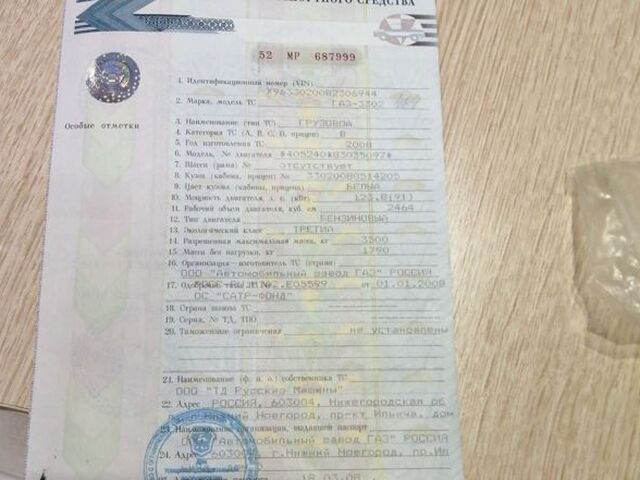 ТРАНСПОРТНОГО СРЕДСТВА
52 МР 687999
Особые отметки
1. Идентификационный номер (VIN) X9633020082306944
2. Марка, модель ТС ГАЗ-3302
3. Наименование (тип ТС) ГРУЗОВОЙ
4. Категория ТС (А, В, С, D, прицеп) В
5. Год изготовления ТС 2008
6. Модель, № двигателя *405240*83035092*
7. Шасси (рама) № отсутствует
8. Кузов (кабина, прицеп) № 33020080514205
9. Цвет кузова (кабины, прицепа) БЕЛЫЙ
10. Мощность двигателя, л. с. (кВт) 123.8(91)
11. Рабочий объем двигателя, куб. см 2464
12. Тип двигателя БЕНЗИНОВЫЙ
13. Экологический класс ТРЕТИЙ
14. Разрешенная максимальная масса, кг 3500
15. Масса без нагрузки, кг 1790
16. Организация-изготовитель ТС (страна)
ООО "Автомобильный завод ГАЗ" РОССИЯ
17. Одобрение типа ТС № от 01.01.2008
ОС "САТР-ФОНД"
18. Страна вывоза ТС
19. Серия, № ТД, ТПО
20. Таможенные ограничения не установлены
21. Наименование (ф. и. о.) собственника ТС
ООО "ТД Русские Машины"
22. Адрес РОССИЯ, 603004, Нижегородская об
Нижний Новгород, пр-кт Ильича, дом
23. Наименование организации, выдавшей паспорт
ООО "Автомобильный завод ГАЗ" РОССИЯ
24. Адрес 603004, г.Нижний Новгород, пр.Ил
18.03.08